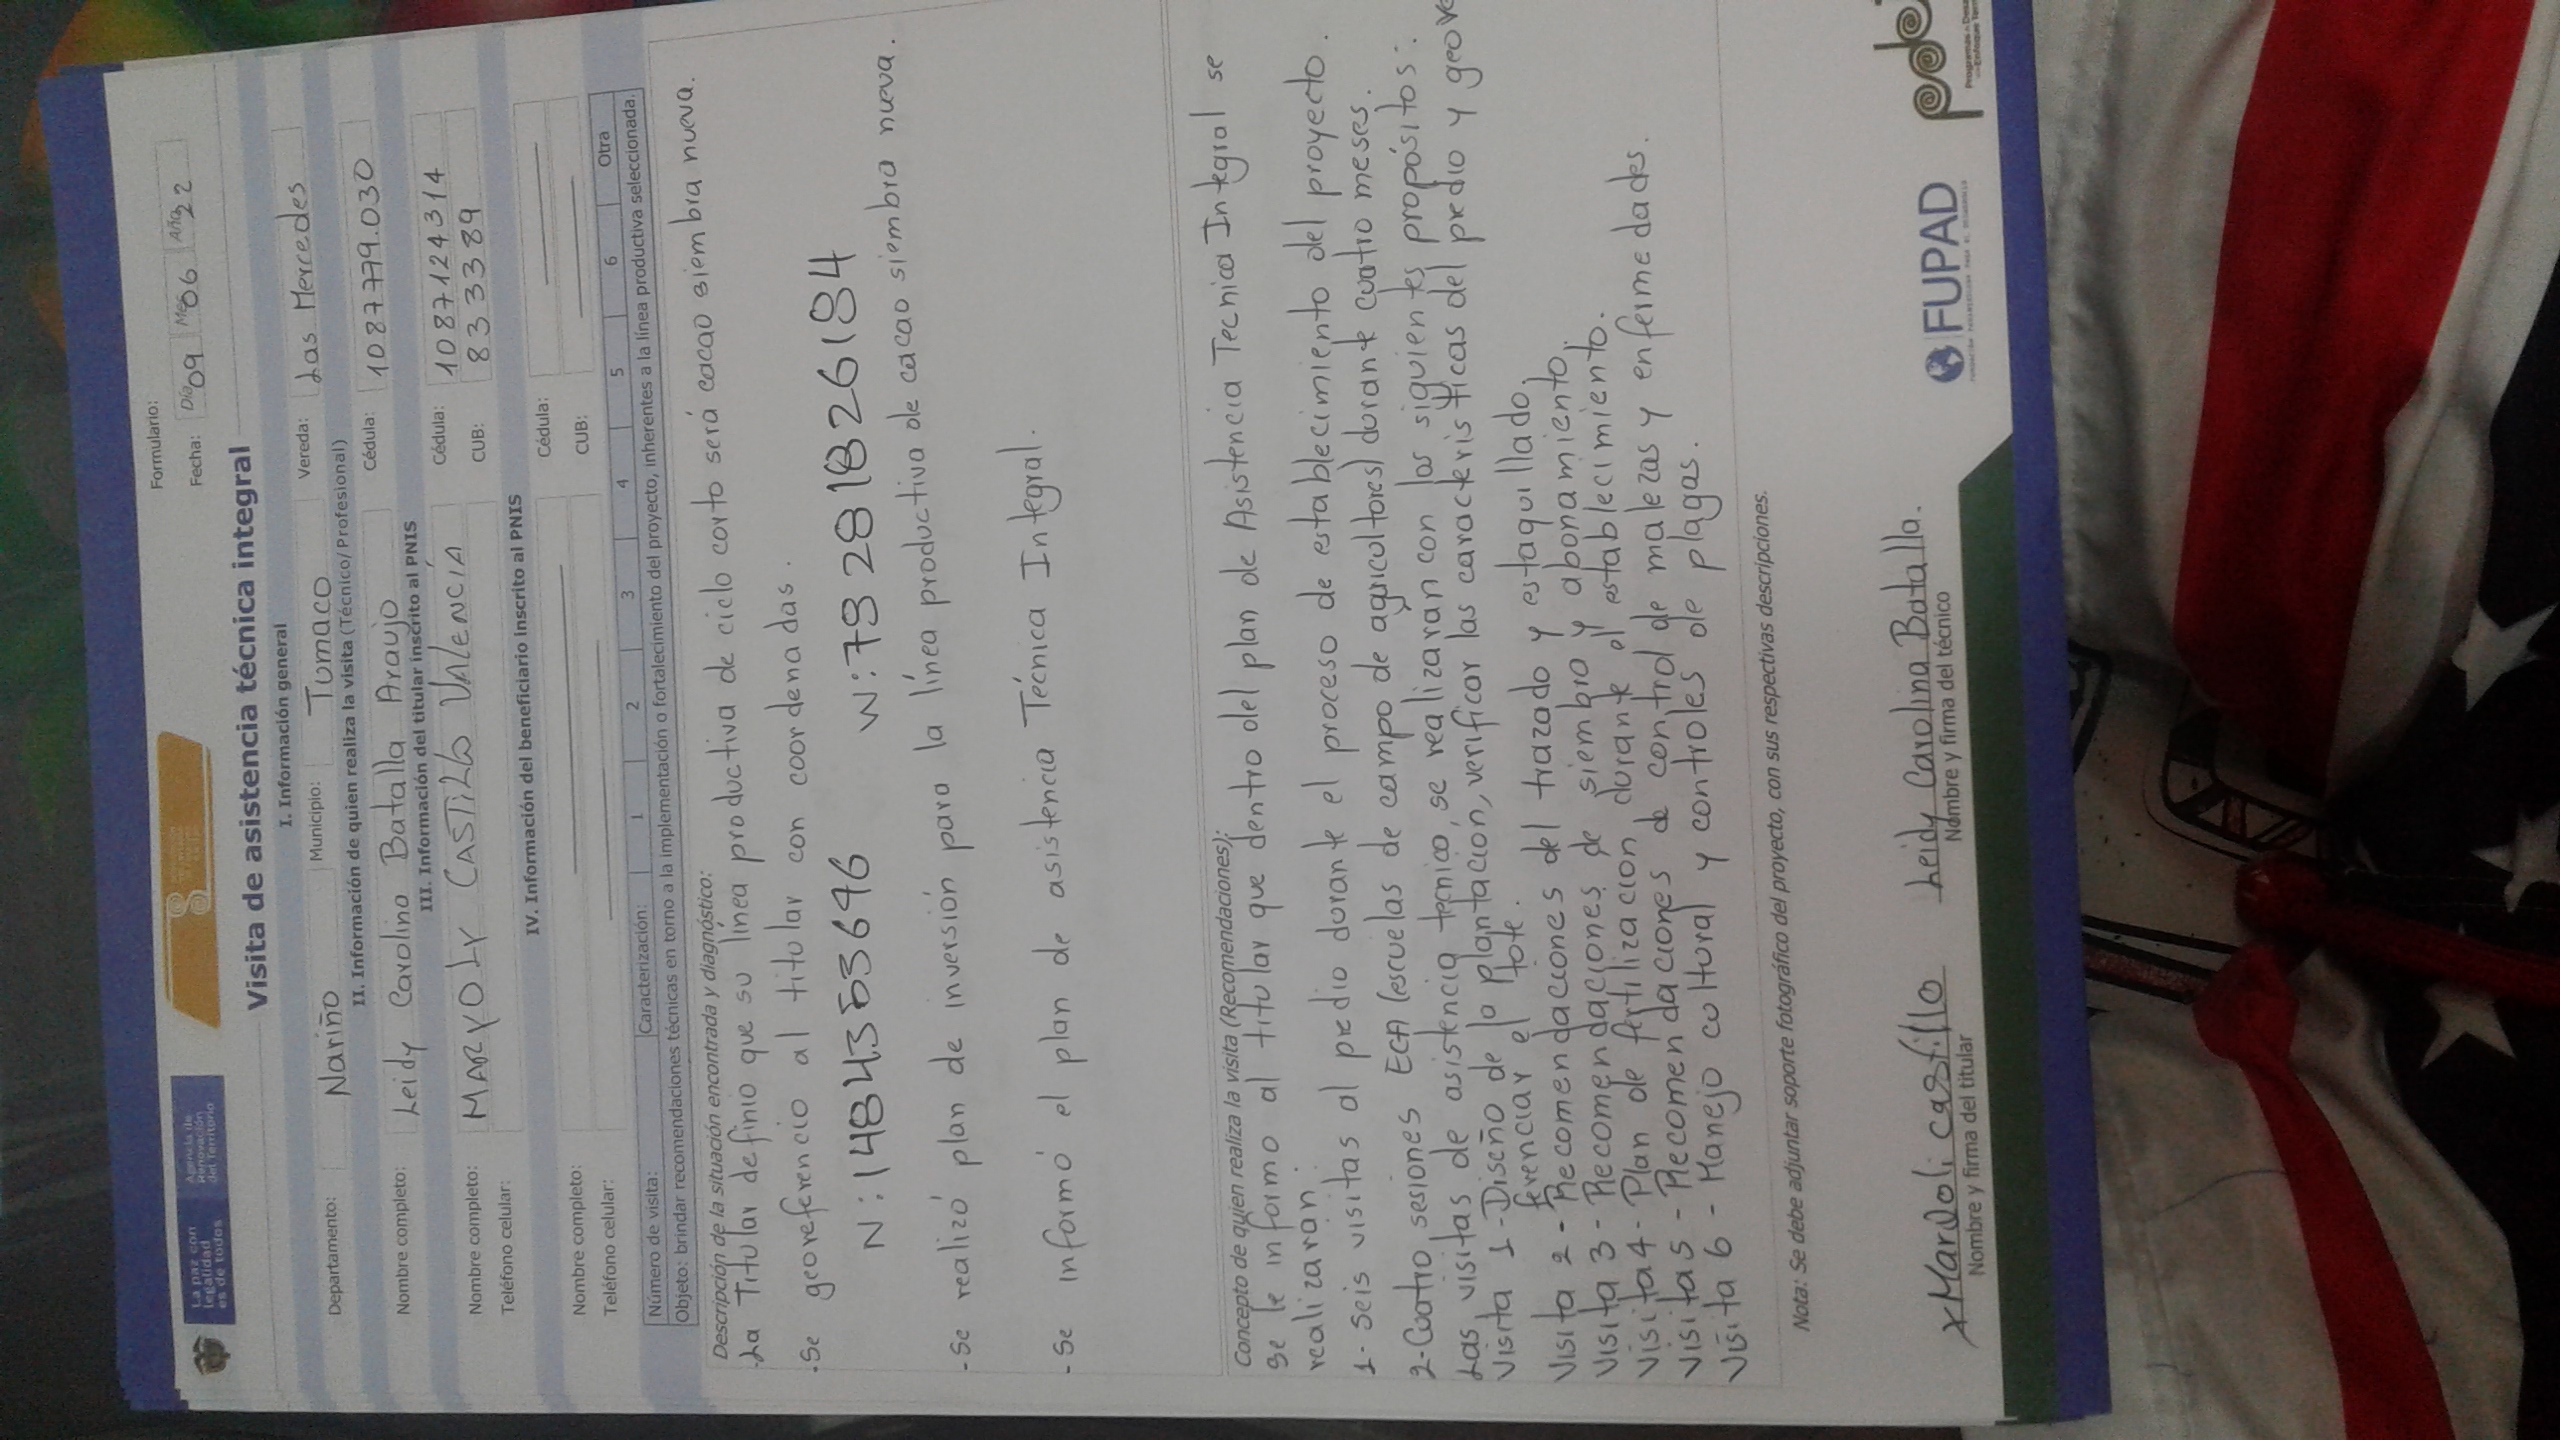 La paz con legalidad es de todos
Agencia de Renovación del Territorio
Formulario:
Fecha: Día 09 Mes 06 Año 22
Visita de asistencia técnica integral
I. Información general
Departamento: Nariño Municipio: Tumaco Vereda: Las Mercedes
II. Información de quien realiza la visita (Técnico/Profesional)
Nombre completo: Leidy Carolina Batalla Araujo Cédula: 1087779.030
III. Información del titular inscrito al PNIS
Nombre completo: MARYOLY CASTILLO VALENCIA Cédula: 1087124314
Teléfono celular: CUB: 833389
IV. Información del beneficiario Inscrito al PNIS
Nombre completo: Cédula:
Teléfono celular: CUB:
Número de visita: Caracterización: 1 2 3 4 5 6 Otra
Objeto: brindar recomendaciones técnicas en torno a la implementación o fortalecimiento del proyecto, inherentes a la línea productiva seleccionada.
Descripción de la situación encontrada y diagnóstico:
-La Titular definio que su línea productiva de ciclo corto será cacao siembra nueva.
-Se georeferencio al titular con coordenadas.
N:1484353646 W:78281826184
-Se realizó plan de inversión para la línea productiva de cacao siembra nueva.
-Se informó el plan de asistencia Técnica Integral.
Concepto de quien realiza la visita (Recomendaciones):
se le informo al titular que dentro del plan de Asistencia Tecnica Integral se
realizaran:
1- seis visitas al predio durante el proceso de establecimiento del proyecto.
2-Cuatro sesiones ECA (escuelas de campo de agricultores) durante cuatro meses.
Las visitas de asistencia tecnico, se realizaran con los siguientes propósitos:
Visita 1-Diseño de la plantación, verificar las caracteristicas del predio y geore
ferenciar el lote.
Visita 2 - Recomendaciones del trazado y estaquillado.
Visita 3 - Recomendaciones de siembra y abonamiento.
Visita 4 - Plan de fertilizacion durante el establecimiento.
Visita 5 - Recomendaciones de control de malezas y enfermedades.
Visita 6 - Manejo cultural y controles de plagas.
Nota: Se debe adjuntar soporte fotográfico del proyecto, con sus respectivas descripciones.
x Maryoli castillo Leidy Carolina Batalla.
Nombre y firma del titular Nombre y firma del técnico
FUPAD